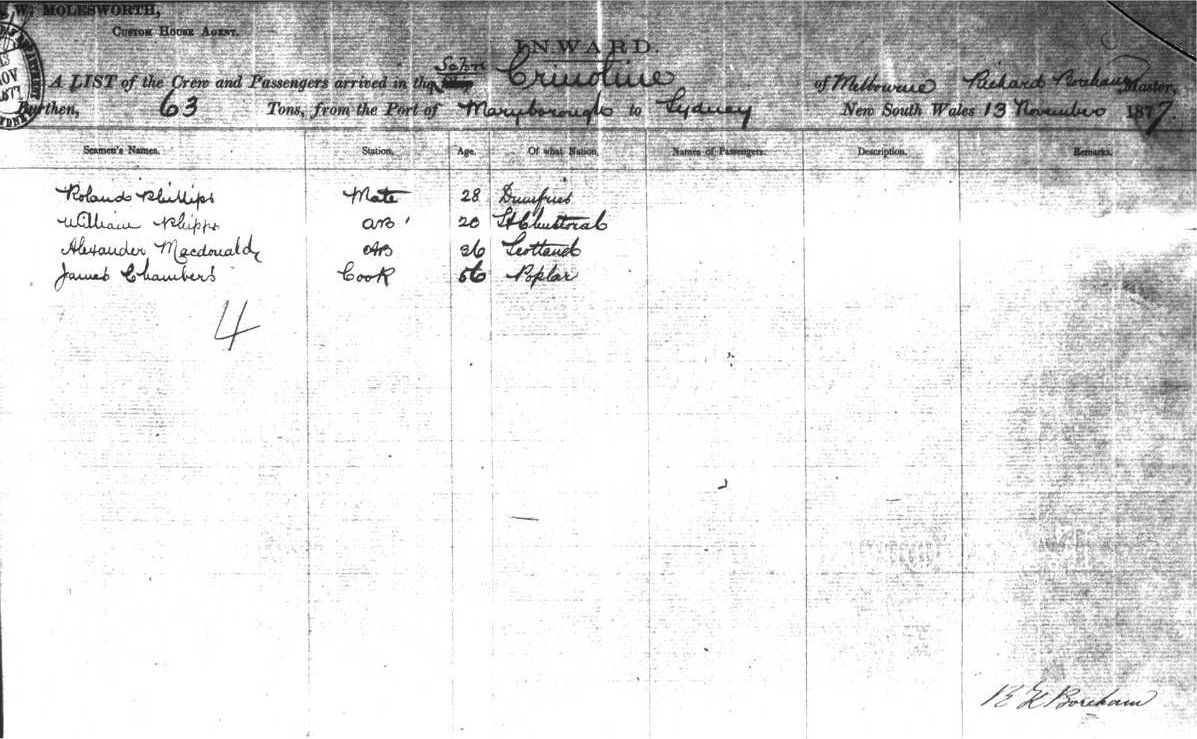 W. MOLESWORTH,
CUSTOM HOUSE AGENT.
NOV
1877
INWARD.
A LIST of the Crew and Passengers arrived in the Schr Crinoline of Melbourne Richard Boreham Master,
Burthen, 63 Tons, from the Port of Maryborough to Sydney New South Wales 13 November 1877.
Seamen's Names. Station. Age. Of what Nation. Names of Passengers. Description. Remarks.
Roland Phillips Mate 28 Dumfries
William Phipps AB 20
Alexander Macdonald AB 36 Scotland
James Chambers Cook 56 Poplar
4
R H Boreham